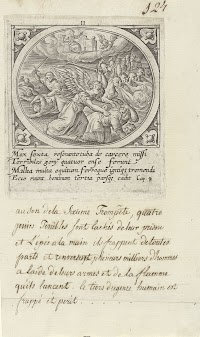 124
11
Mox sexta resonante tuba de carcere missi
Terribiles gery quatuor ense feriunt
Multa millia equitum ignisq tremenda
Ecce ruunt hominum tertia parsq cadit Cap 9
au son de la Sixieme Trompete, quatre
genies Terribles sont lachés de leur prison
et l'épée a la main ils frappent de toutes
parts et renversent plusieurs millions d'hommes
a l'aide de leur armes et de la flamme
quils lancent. le tiers du genre humain est
frappé et périt . . .